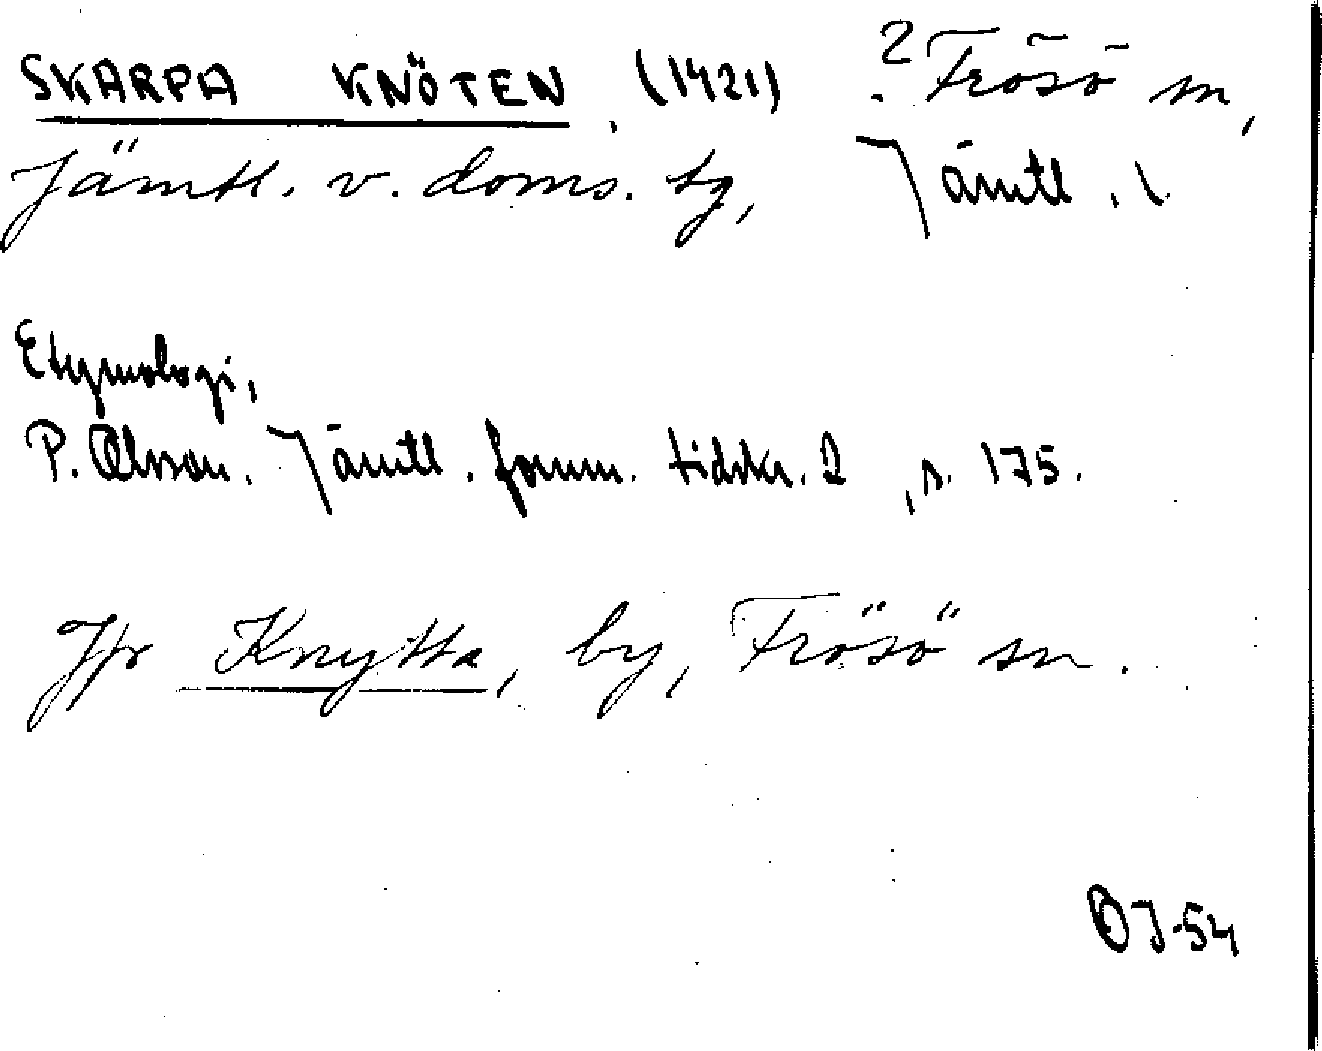 SKARPA KNÖTEN, (1421) ? Frösö sn,
Jämtl. v. doms. tg, Jämtl. l.
Etymologi,
P. Olsson. Jämtl. fornm. tidskr. 2, s. 175.
Jfr Knytta, by, Frösö sn.
OJ-54